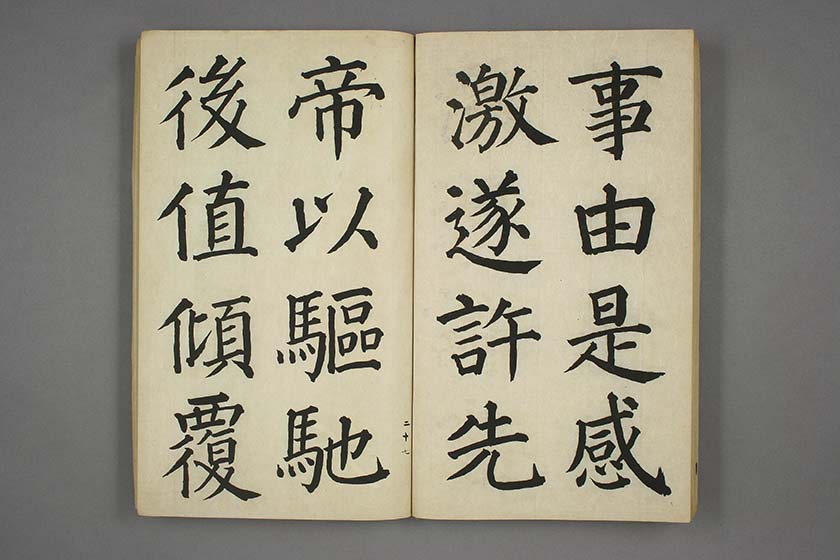 事由是感
激遂許先
帝以驅馳
後值傾覆
二十七